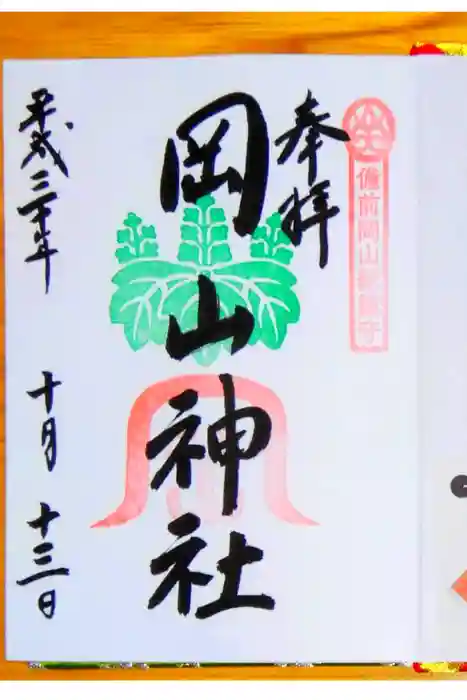 奉拝
岡山神社
平成三十年 十月 十三日